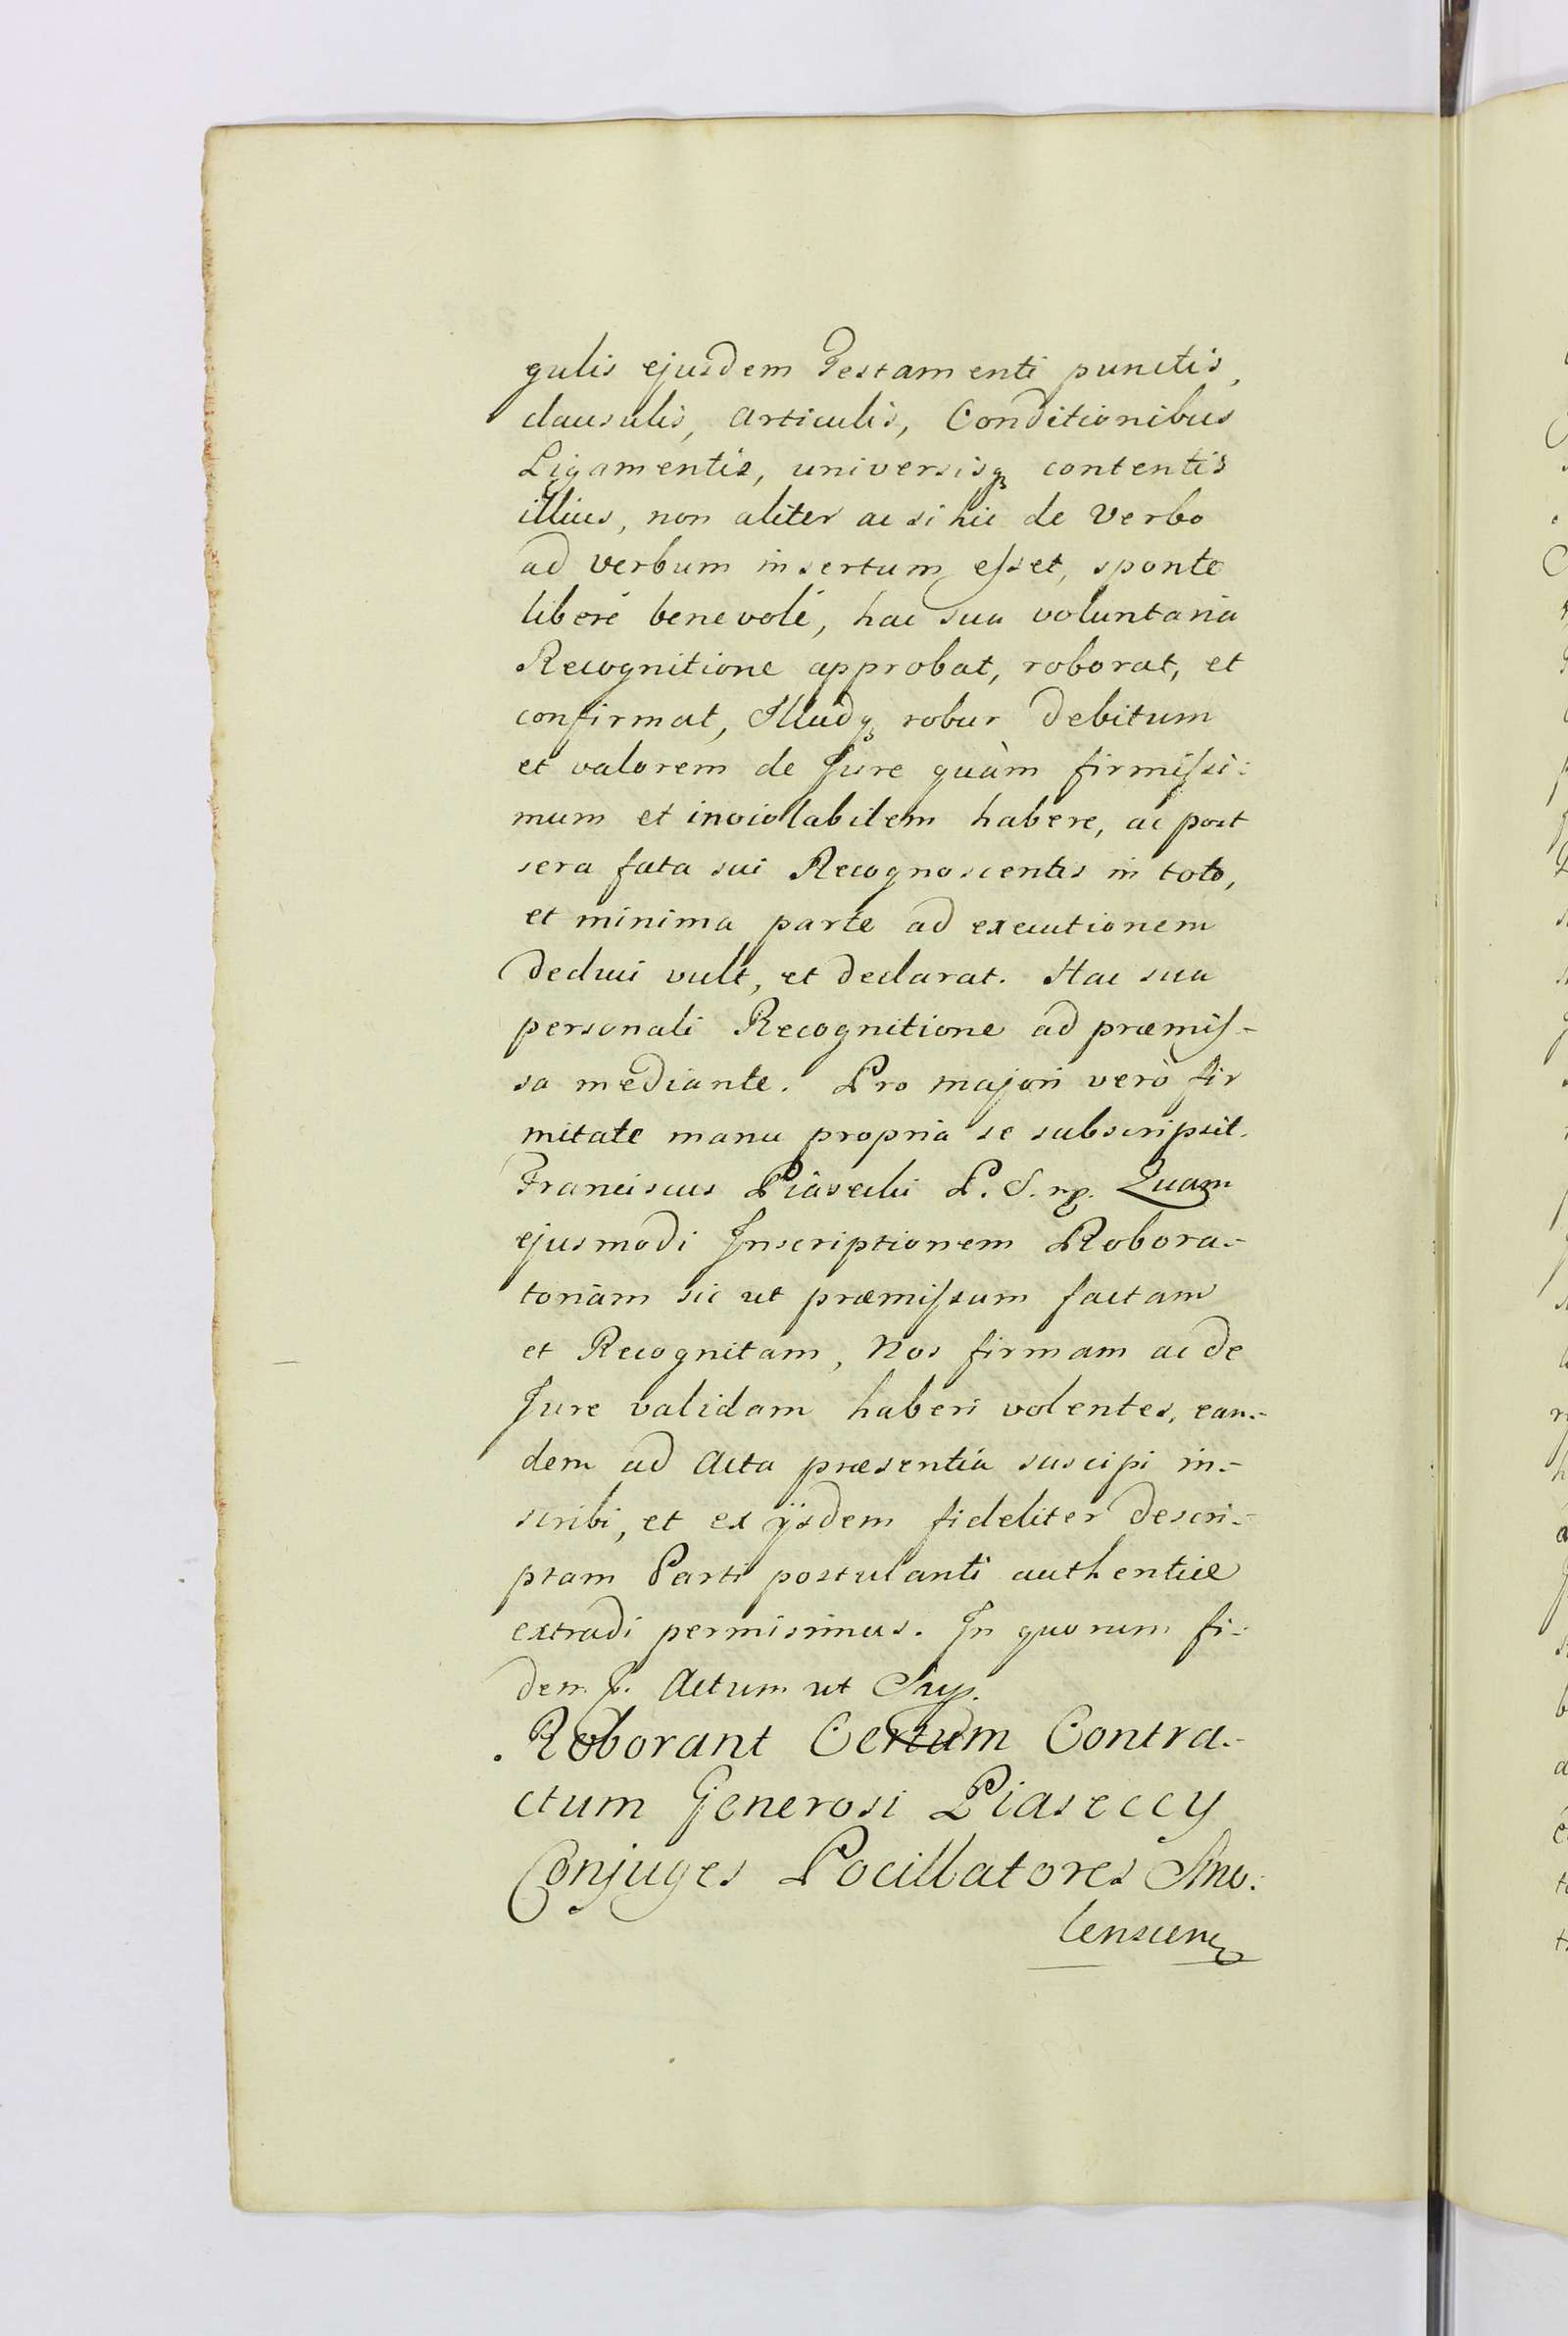 gulis ejusdem Testamenti punctis,
clausulis, Articulis, Conditionibus
Ligamentis, universisq₃ contentis
illius, non aliter ac si hic de Verbo
ad verbum insertum esset, sponte
liberè benevolè, hac sua voluntaria
Recognitione approbat, roborat, et
confirmat, Illudq₃ robur debitum
et valorem de Jure quàm firmissi:
mum et inviolabilem habere, ac post
sera fata sui Recognoscentis in toto,
et minima parte ad executionem
deduci vult, et declarat. Hac sua
personali Recognitione ad præmis-
sa mediante. Pro majori verò fir
mitate manu propria se subscripsit.
Franciscus Piasecki P. S. mp. Quam
ejusmodi Inscriptionem Robora-
toriam sic ut præmissum factam
et Recognitam, Nos firmam ac de
Jure validam haberi volentes, ean-
dem ad Acta præsentia suscipi in-
scribi, et ex ijsdem fideliter descri-
ptam Parti postulanti authenticè
extradi permisimus. In quorum fi-
dem Actum ut Sup.
Roborant Certum Contra-
ctum Generosi Piaseccy
Conjuges Pocillatores Smo:
lenscen